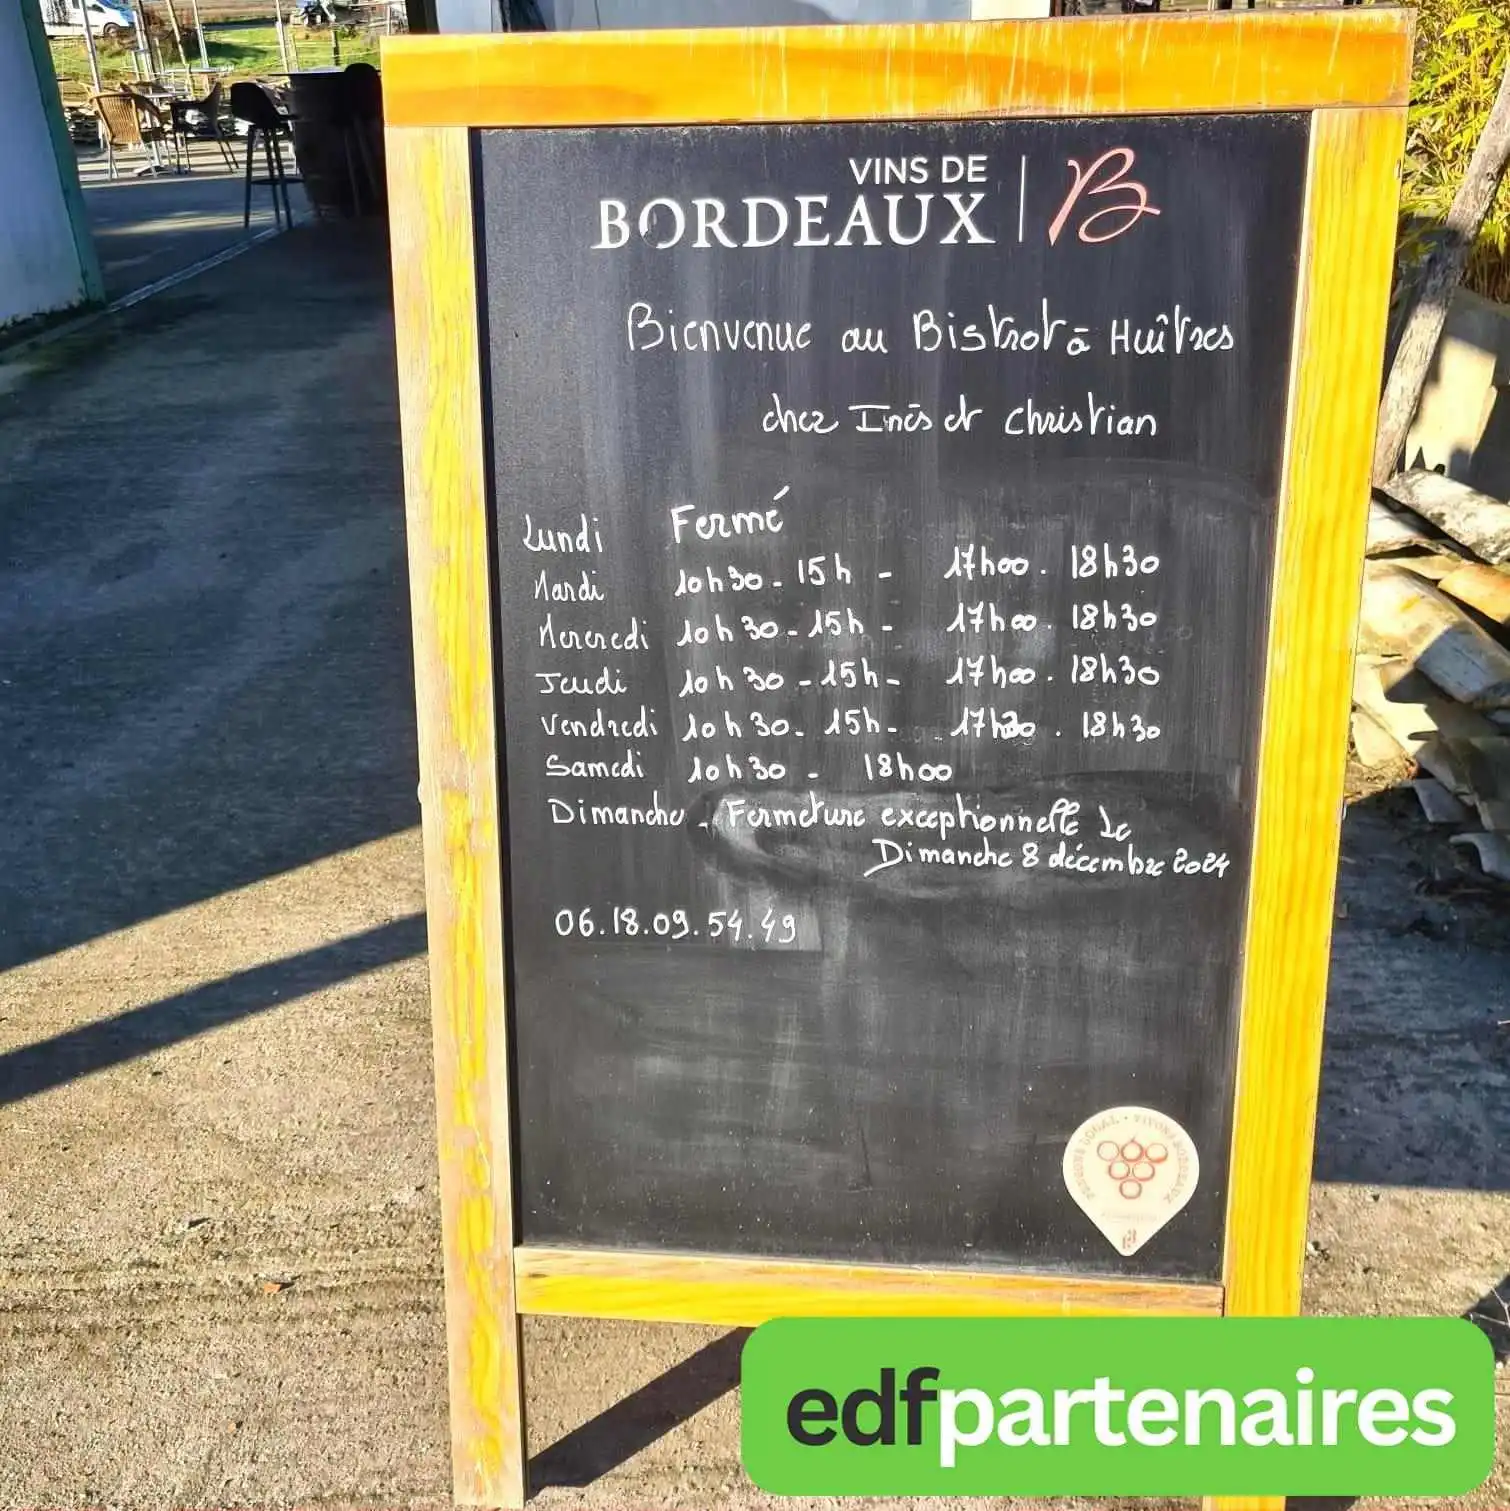 VINS DE
BORDEAUX | B
Bienvenue au Bistrot à Huîtres
chez Inès et Christian
Lundi Fermé
Mardi 10h30 - 15h - 17h00 . 18h30
Mercredi 10h30 - 15h - 17h00 . 18h30
Jeudi 10h30 - 15h - 17h00 . 18h30
Vendredi 10h30 - 15h - 17h30 . 18h30
Samedi 10h30 - 18h00
Dimanche - Fermeture exceptionnelle le
Dimanche 8 décembre 2024
06.18.09.54.49
edfpartenaires